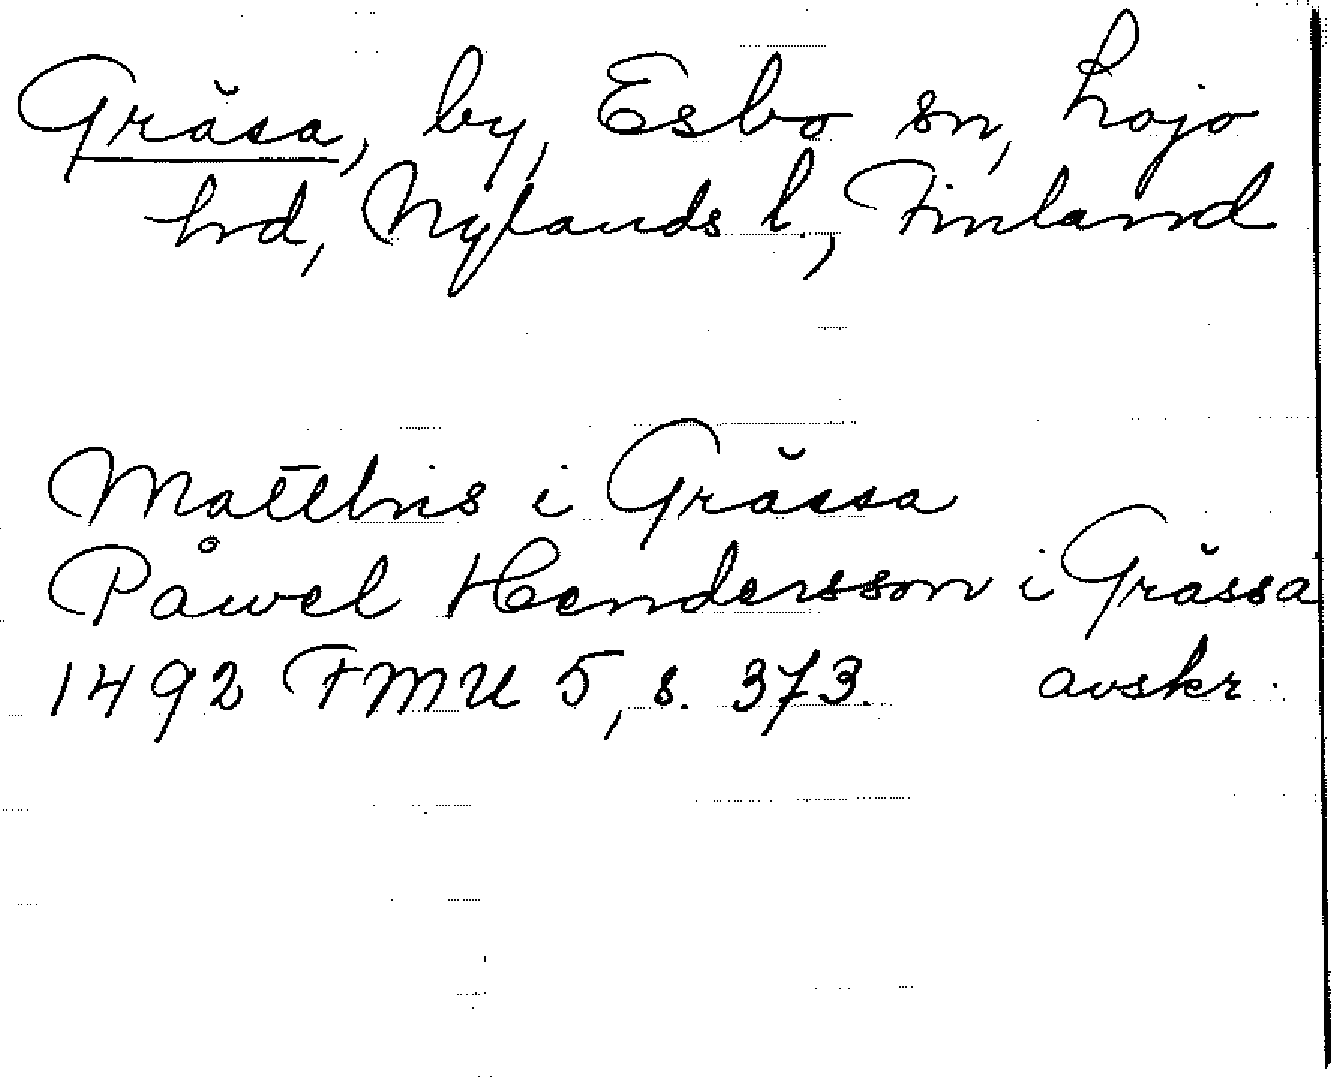 Gräsa, by, Esbo sn, Lojo
hd, Nylands l., Finland
Matthis i Grässa
Påwel Hendersson i Grässa
1492 FMU 5, s. 373. avskr.